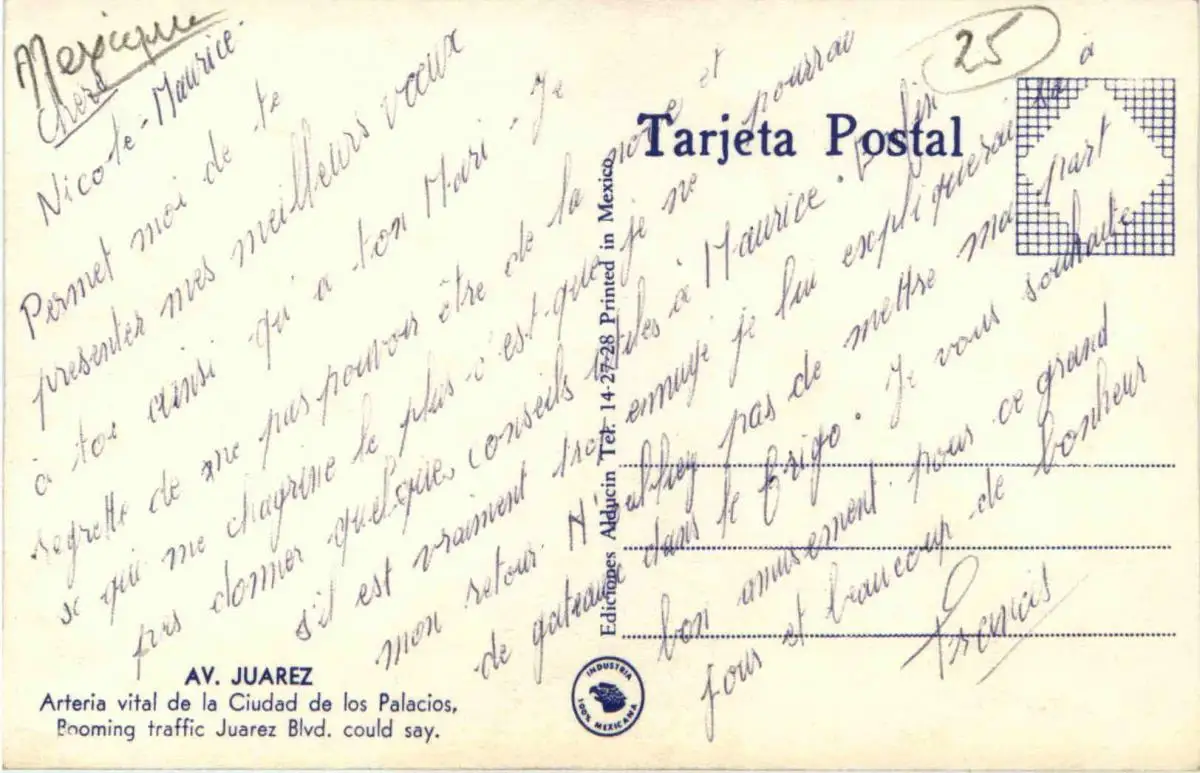 Mexique
25
Chers
Nicole-Maurice.
Permet moi de te
presenter mes meilleurs vœux
à toi ainsi qu'a ton Mari - Je
regrette de ne pas pouvoir être de la noce et
se qui me chagrine le plus c'est que je ne pourrai
pas donner quelques conseils utiles à Maurice.
s'il est vraiment trop ennuyé je lui expliquerai sa à
mon retour. N'oubliez pas de mettre ma part
de gateaux dans le frigo. Je vous souhaite
bon amusement pour ce grand
jour et beaucoup de bonheur
Francis
Tarjeta Postal
Ediciones Alducin Tel. 14-27-28 Printed in Mexico
AV. JUAREZ
Arteria vital de la Ciudad de los Palacios,
Booming traffic Juarez Blvd. could say.
INDUSTRIA
100% MEXICANA